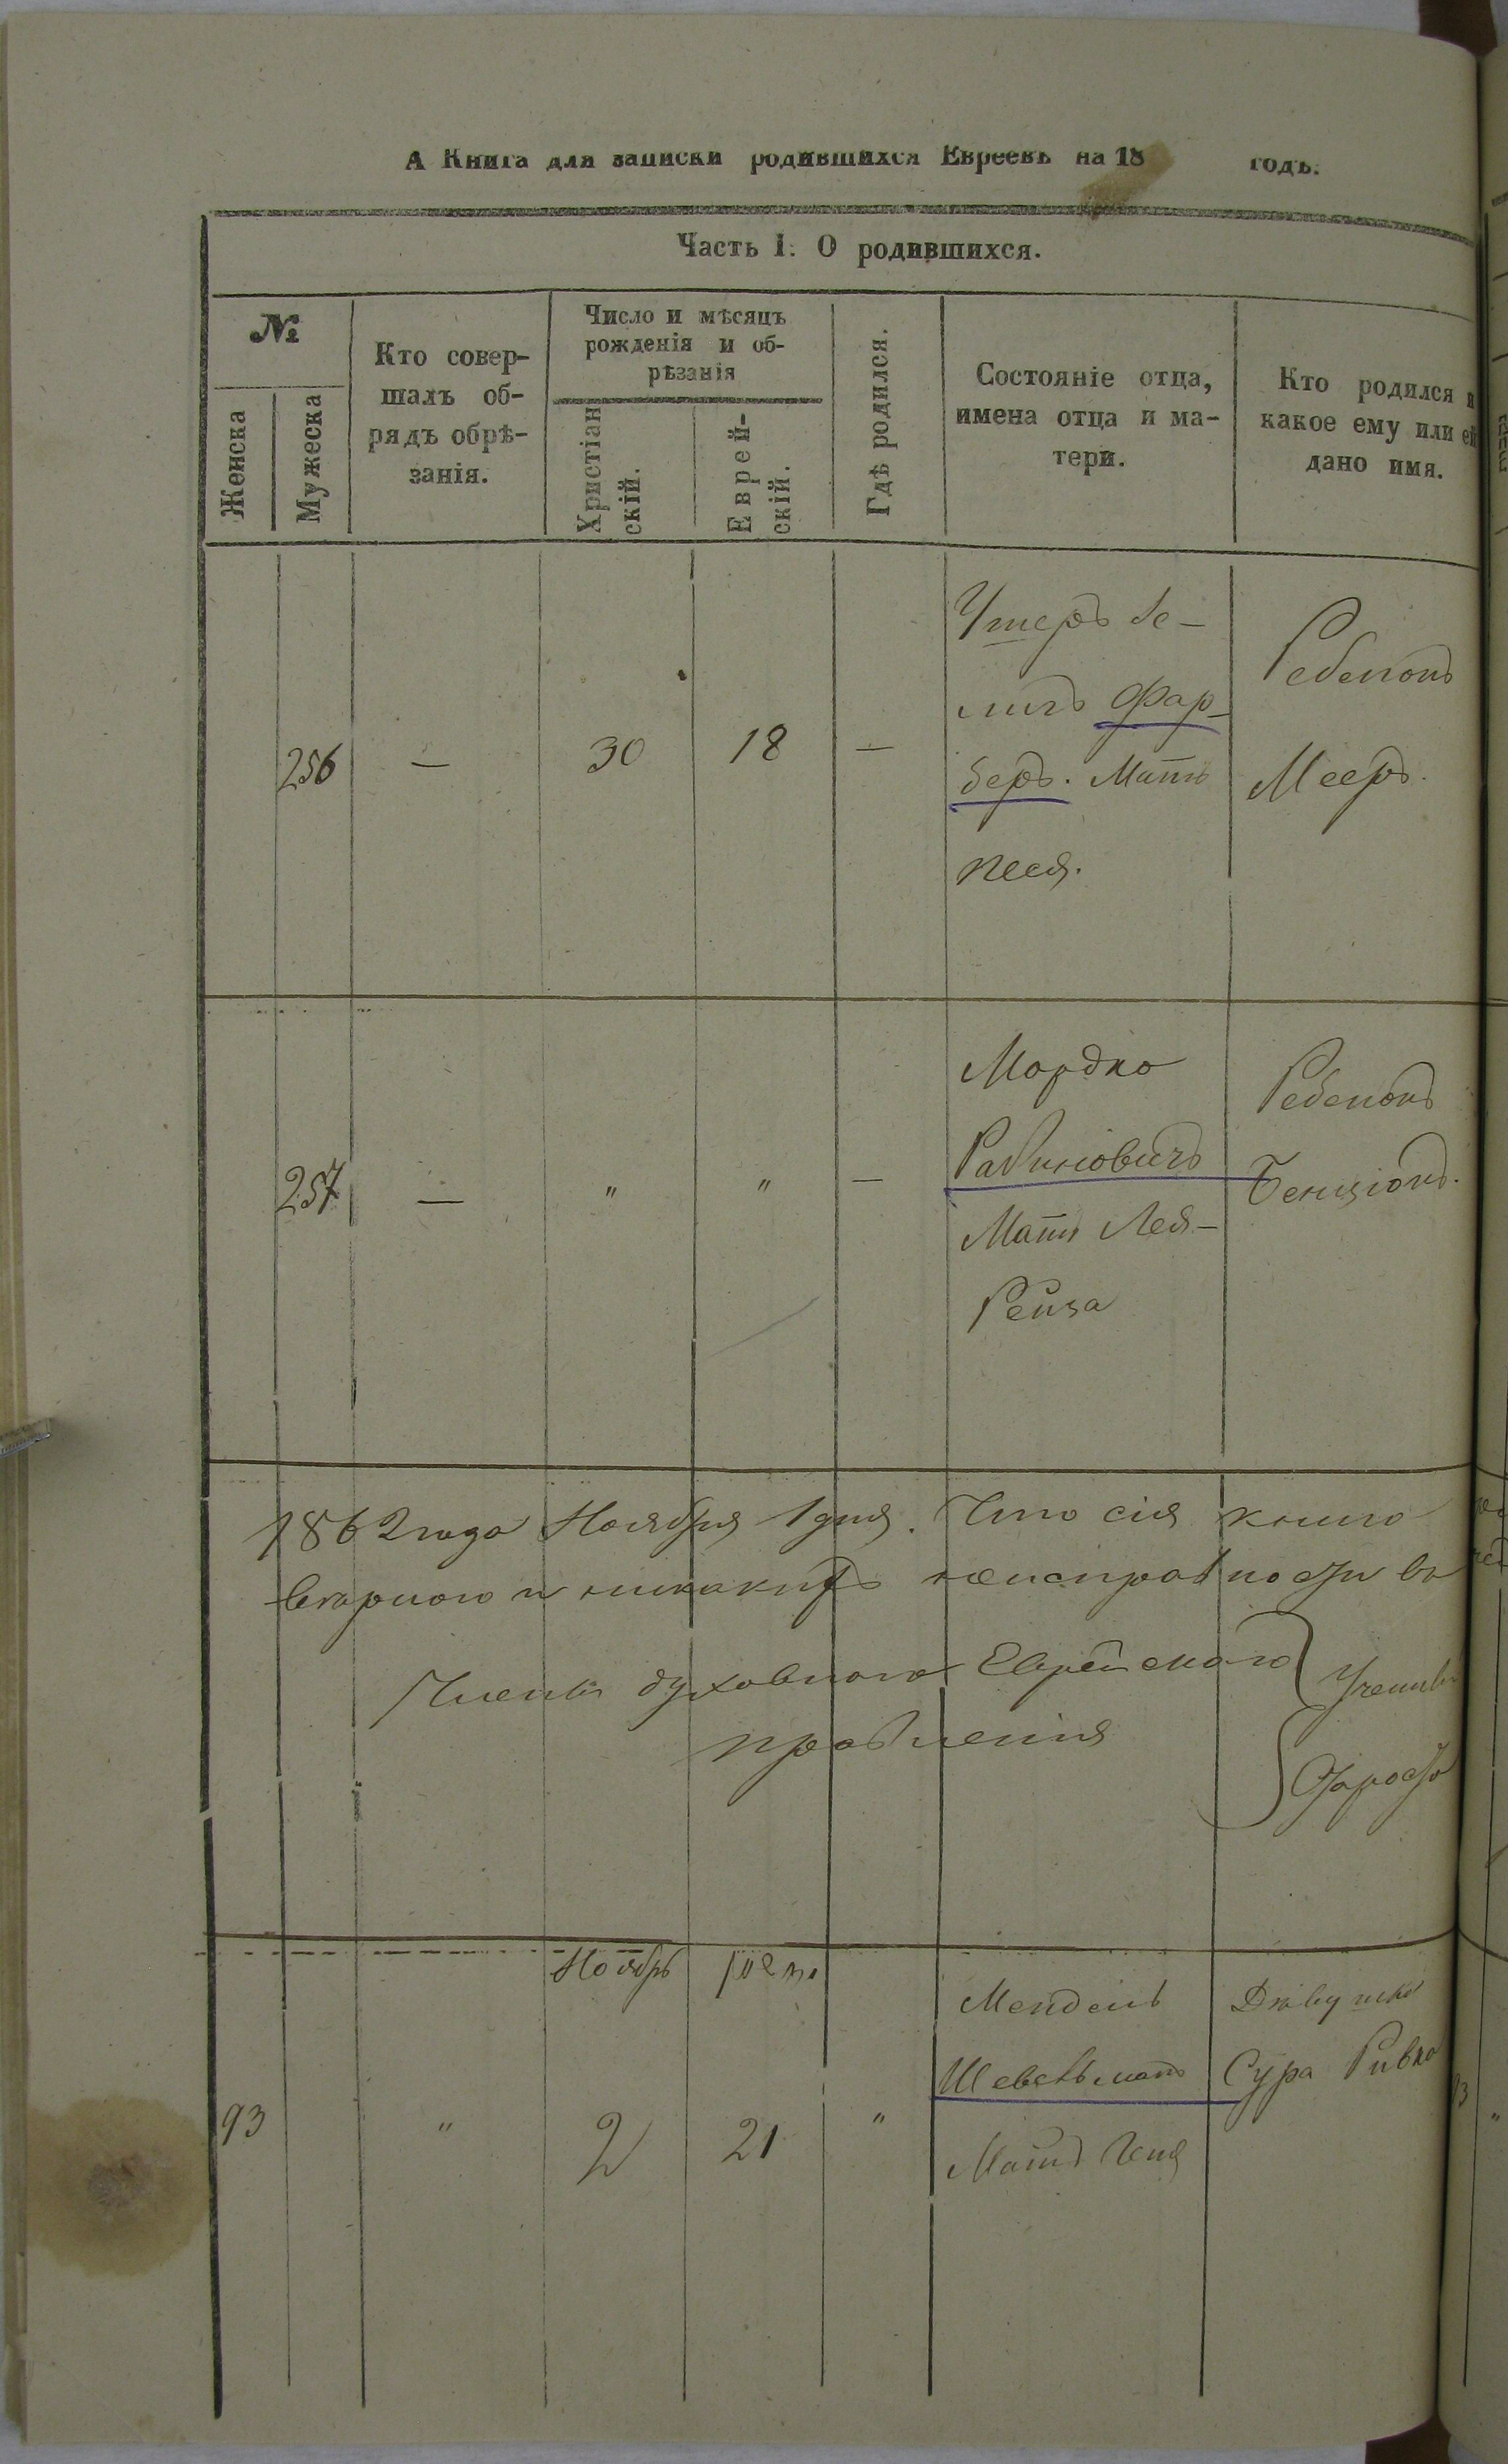 А Книга для записки родившихся Евреевъ на 18 годъ.
Часть I. О родившихся.
№
Женска
Мужеска
Кто совер-
шалъ об-
рядъ обрѣ-
занія.
Число и мѣсяцъ
рожденія и об-
рѣзанія
Христіан
скій.
Еврей-
скій.
Гдѣ родился.
Состояніе отца,
имена отца и ма-
тери.
Кто родился и
какое ему или ей
дано имя.
256
—
30
18
—
Фар-
беръ. Мать
Песя.
Ребенокъ
Мееръ.
257
—
"
"
—
Мордко
Рабиновичъ
Мать Лея-
Рейза
Ребенокъ
Бенціонъ.
1862 года Ноября 1 дня. Что сія книга
и никакихъ неисправности въ
Члены духовнаго Еврейскаго
правленія
Ученый
Староста
93
"
Ноябрь
2
21
"
Мендель
Шевельманъ
Мать Геня
Дѣвушка
Сура Ривка